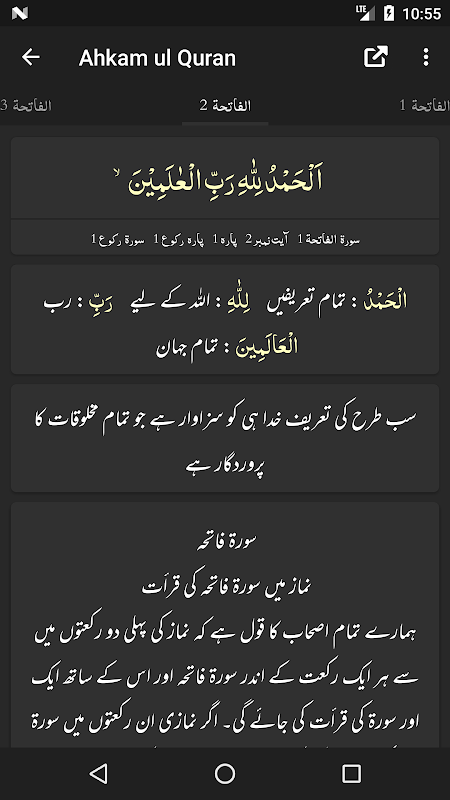 LTE 10:55
Ahkam ul Quran
الفاتحة 1
الفاتحة 2
الفاتحة 3
اَلْحَمْدُ لِلّٰهِ رَبِّ الْعٰلَمِيْنَ ۙ
سورة الفاتحة 1 آیت نمبر 2 پارہ 1 پارہ رکوع 1 سورۃ رکوع 1
الْحَمْدُ : تمام تعریفیں لِلّٰهِ : اللہ کے لیے رَبِّ : رب
الْعَالَمِينَ : تمام جہان
سب طرح کی تعریف خدا ہی کو سزاوار ہے جو تمام مخلوقات کا
پروردگار ہے
سورۃ فاتحہ
نماز میں سورۃ فاتحہ کی قرأت
ہمارے تمام اصحاب کا قول ہے کہ نماز کی پہلی دو رکعتوں میں
سے ہر ایک رکعت کے اندر سورۃ فاتحہ اور اس کے ساتھ ایک
اور سورۃ کی قرأت کی جائے گی۔ اگر نمازی ان رکعتوں میں سورۃ